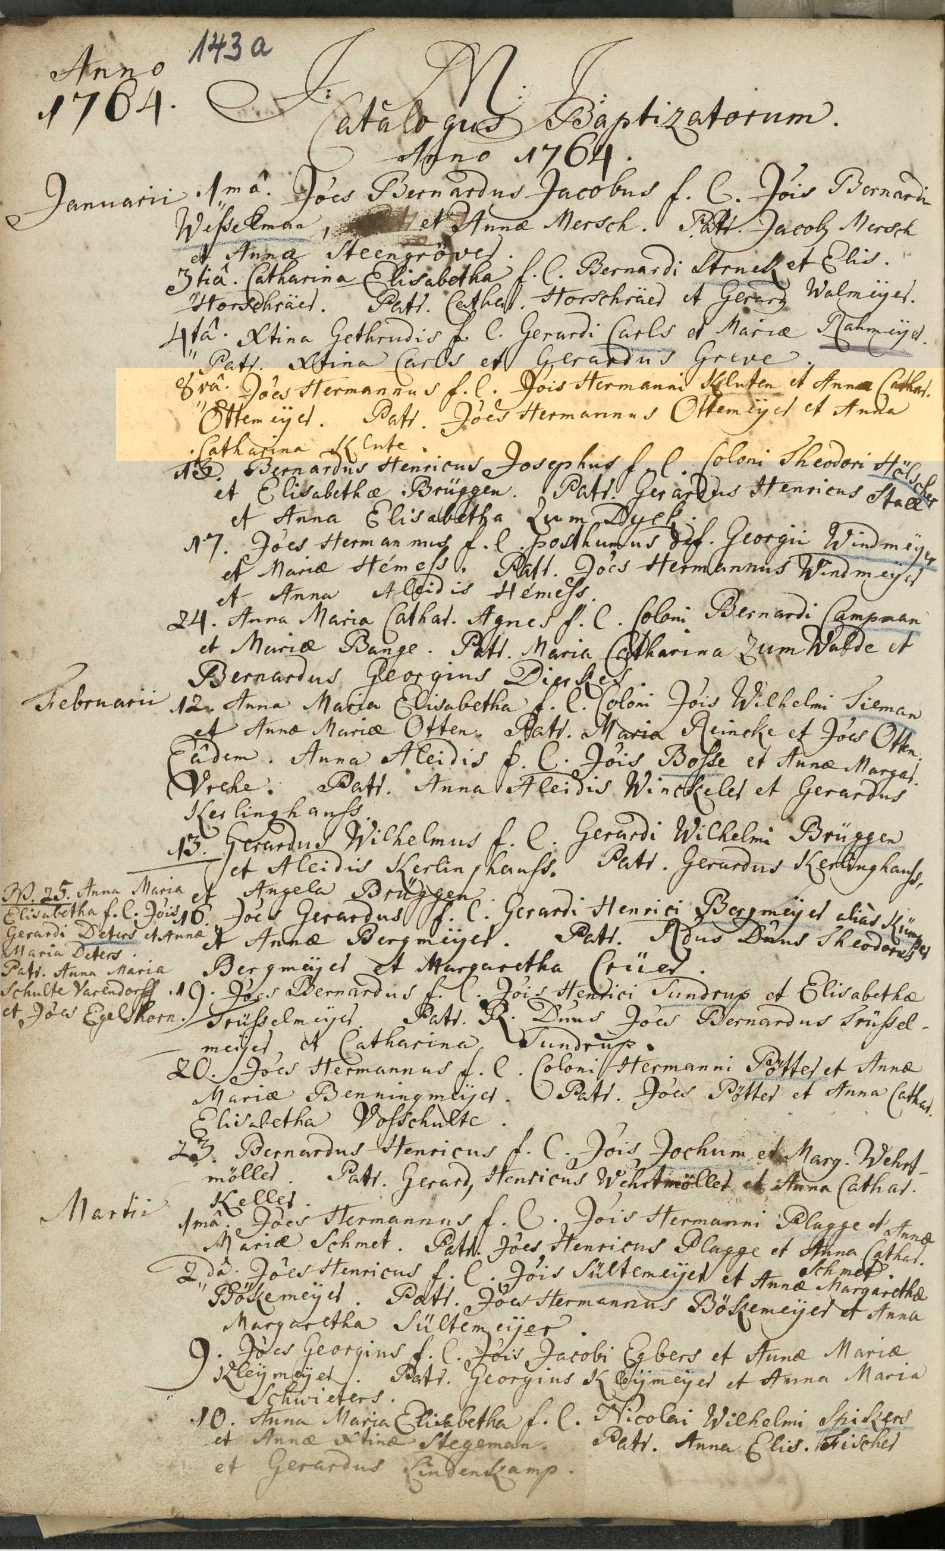 143a
Anno
1764.
J. M. J.
Catalogus Baptizatorum.
Anno 1764.
Januarii 1mâ. Jôes Bernardus Jacobus f. l. Jôis Bernardi
Wesselman, et Annæ Mersch. Patr. Jacob Mersch
et Anna Steengröver.
3tiâ. Catharina Elisabetha f. l. Bernardi Struck et Elis.
Horschräer. Patr. Cathar. Horschräer et Gerard Walmeÿer.
4tâ. Xtina Gethrudis f. l. Gerardi Carls et Mariæ Rahmeÿer.
Patr. Xtina Carls et Gerardus Greve.
8vâ. Jôes Hermannus f. l. Jôis Hermanni Kluten et Annæ Cathar.
Ottemeÿer. Patr. Jôes Hermannus Ottemeÿer et Anna
Catharina Klute.
13. Bernardus Henricus Josephus f. l. Coloni Theodori Hölscher
et Elisabethæ Brüggen. Patr. Gerardus Henricus Stall
et Anna Elisabetha Zum Dyck.
17. Jôes Hermannus f. l. posthumus def. Georgii Windmeÿer
et Mariæ Hemess. Patr. Jôes Hermannus Windmeÿer
et Anna Aleidis Hemess.
24. Anna Maria Cathar. Agnes f. l. Coloni Bernardi Campman
et Mariæ Bange. Patr. Maria Catharina Zum Walde et
Bernardus Georgius Dierkes.
Februarii 12. Anna Maria Elisabetha f. l. Coloni Jôis Wilhelmi Tieman
et Annæ Mariæ Otten. Patr. Maria Reincke et Jôes Otten
Eâdem. Anna Aleidis f. l. Jôis Bosse et Annæ Margar.
Vrehe. Patr. Anna Aleidis Winckeler et Gerardus
Kerlinghauss.
13. Gerardus Wilhelmus f. l. Gerardi Wilhelmi Brüggen
et Aleidis Kerlinghauss. Patr. Gerardus Kerlinghauss,
et Angela Brüggen.
N. 25. Anna Maria
Elisabetha f. l. Jôis
Gerardi Deters et Annæ
Maria Deters.
Patr. Anna Maria
Schulte Varendorff
et Jôes Egelkorn.
16. Jôes Gerardus f. l. Gerardi Henrici Bergmeÿer aliàs
et Annæ Bergmeÿer. Patr. Rdus Dnus Theodorus
Bergmeÿer et Margaretha Crüer.
19. Jôes Bernardus f. l. Jôis Henrici Sundrup et Elisabethæ
Trüsselmeÿer Patr. R. Dnus Jôes Bernardus Trüssel-
meÿer et Catharina Sundrup.
20. Jôes Hermannus f. l. Coloni Hermanni Pötter et Annæ
Mariæ Benningmeÿer. Patr. Jôes Pötter et Anna Cathar.
Elisabetha Vosschulte.
23. Bernardus Henricus f. l. Jôis Jochum et Marg. Wehrt-
möller. Patr. Gerard, Henricus Wehrtmöller et Anna Cathar.
Keller.
Martii 1mâ. Jôes Hermannus f. l. Jôis Hermanni Plagge et Annæ
Mariæ Schmet. Patr. Jôes Henricus Plagge et Anna Cathar.
Schmet.
2dâ. Jôes Henricus f. l. Jôis Sültemeÿer et Annæ Margarethæ
Bökemeÿer. Patr. Jôes Hermannus Bökemeÿer et Anna
Margaretha Sültemeÿer.
9. Jôes Georgius f. l. Jôis Jacobi Egbers et Annæ Mariæ
Kleÿmeÿer. Patr. Georgius Kleÿmeÿer et Anna Maria
Schwieters.
10. Anna Maria Elisabetha f. l. Nicolai Wilhelmi Spikers
et Annæ Xtinæ Stegeman. Patr. Anna Elis. Fischer
et Gerardus Lindenkamp.